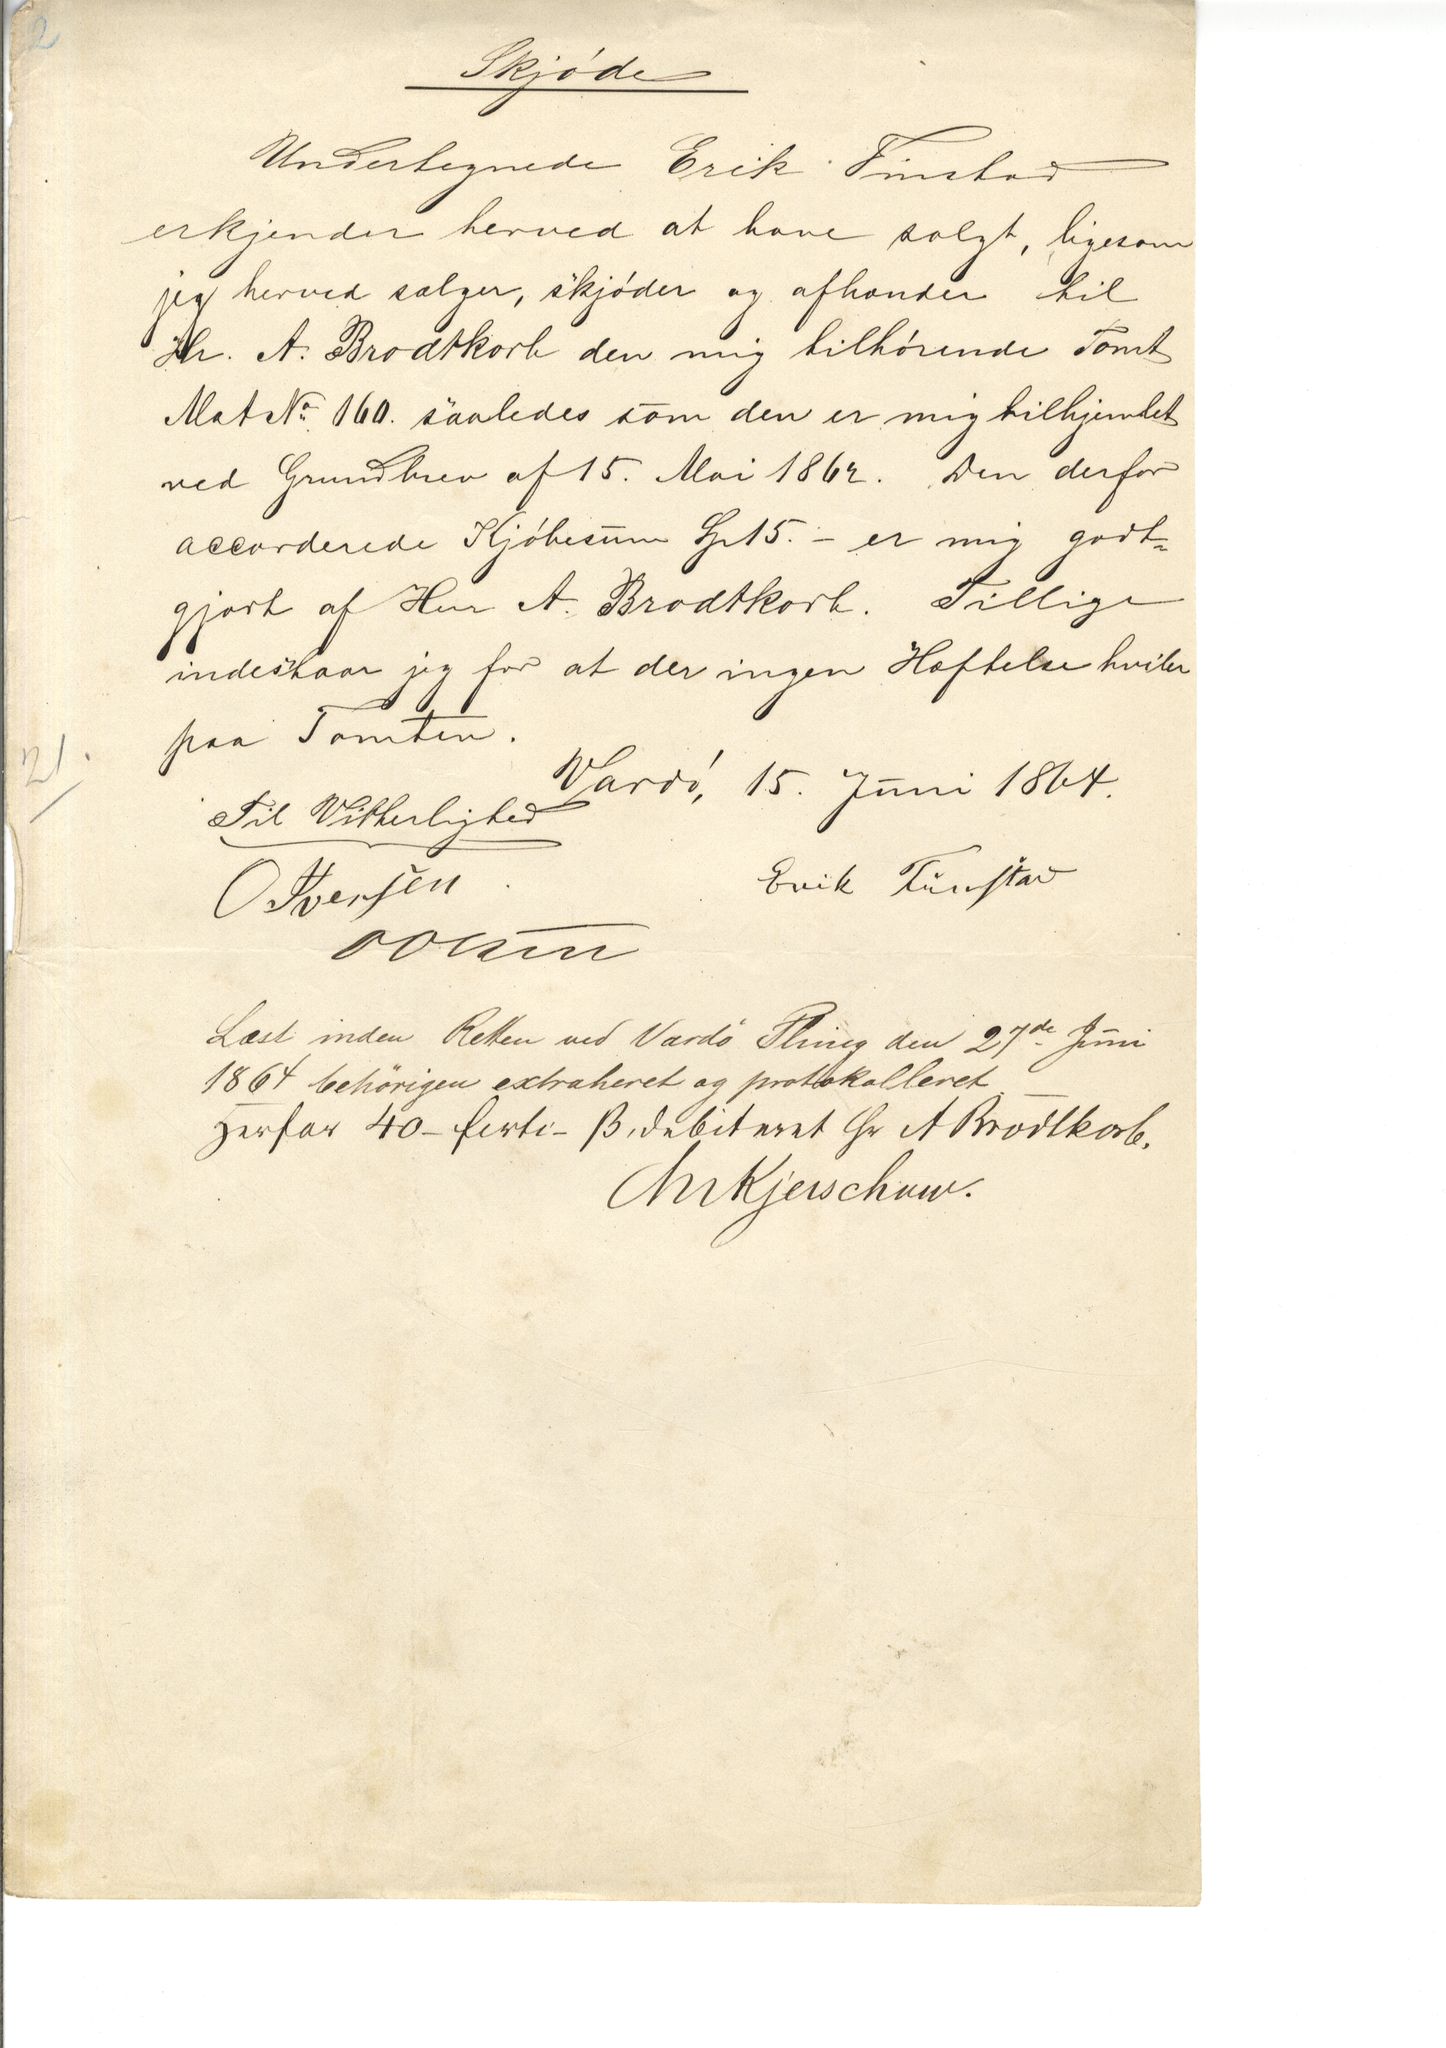 2
Skjøde
Undertegnede Erik Finstad
erkjender herved at have solgt, ligesom
jeg herved sælger, skjøder og afhænder til
Hr. A. Brodtkorb den mig tilhørende Tomt
Mat No 160. saaledes som den er mig tilhjemlet
ved Grundbrev af 15. Mai 1862. Den derfor
accorderede Kjøbesum Sp 15. – er mig godt-
gjort af Herr A. Brodtkorb. Tillige
indestaar jeg for at der ingen Hæftelse hviler
paa Tomten.
21.
Vardö, 15. Juni 1864.
Til Vitterlighed
O Iversen
Erik Finstad
O Olsen
Læst inden Retten ved Vardö Thing den 27de Juni
1864 behörigen extraheret og protokolleret
Herfor 40 – firti – β. debiteret Hr A Brodtkorb.
Kjerschow.